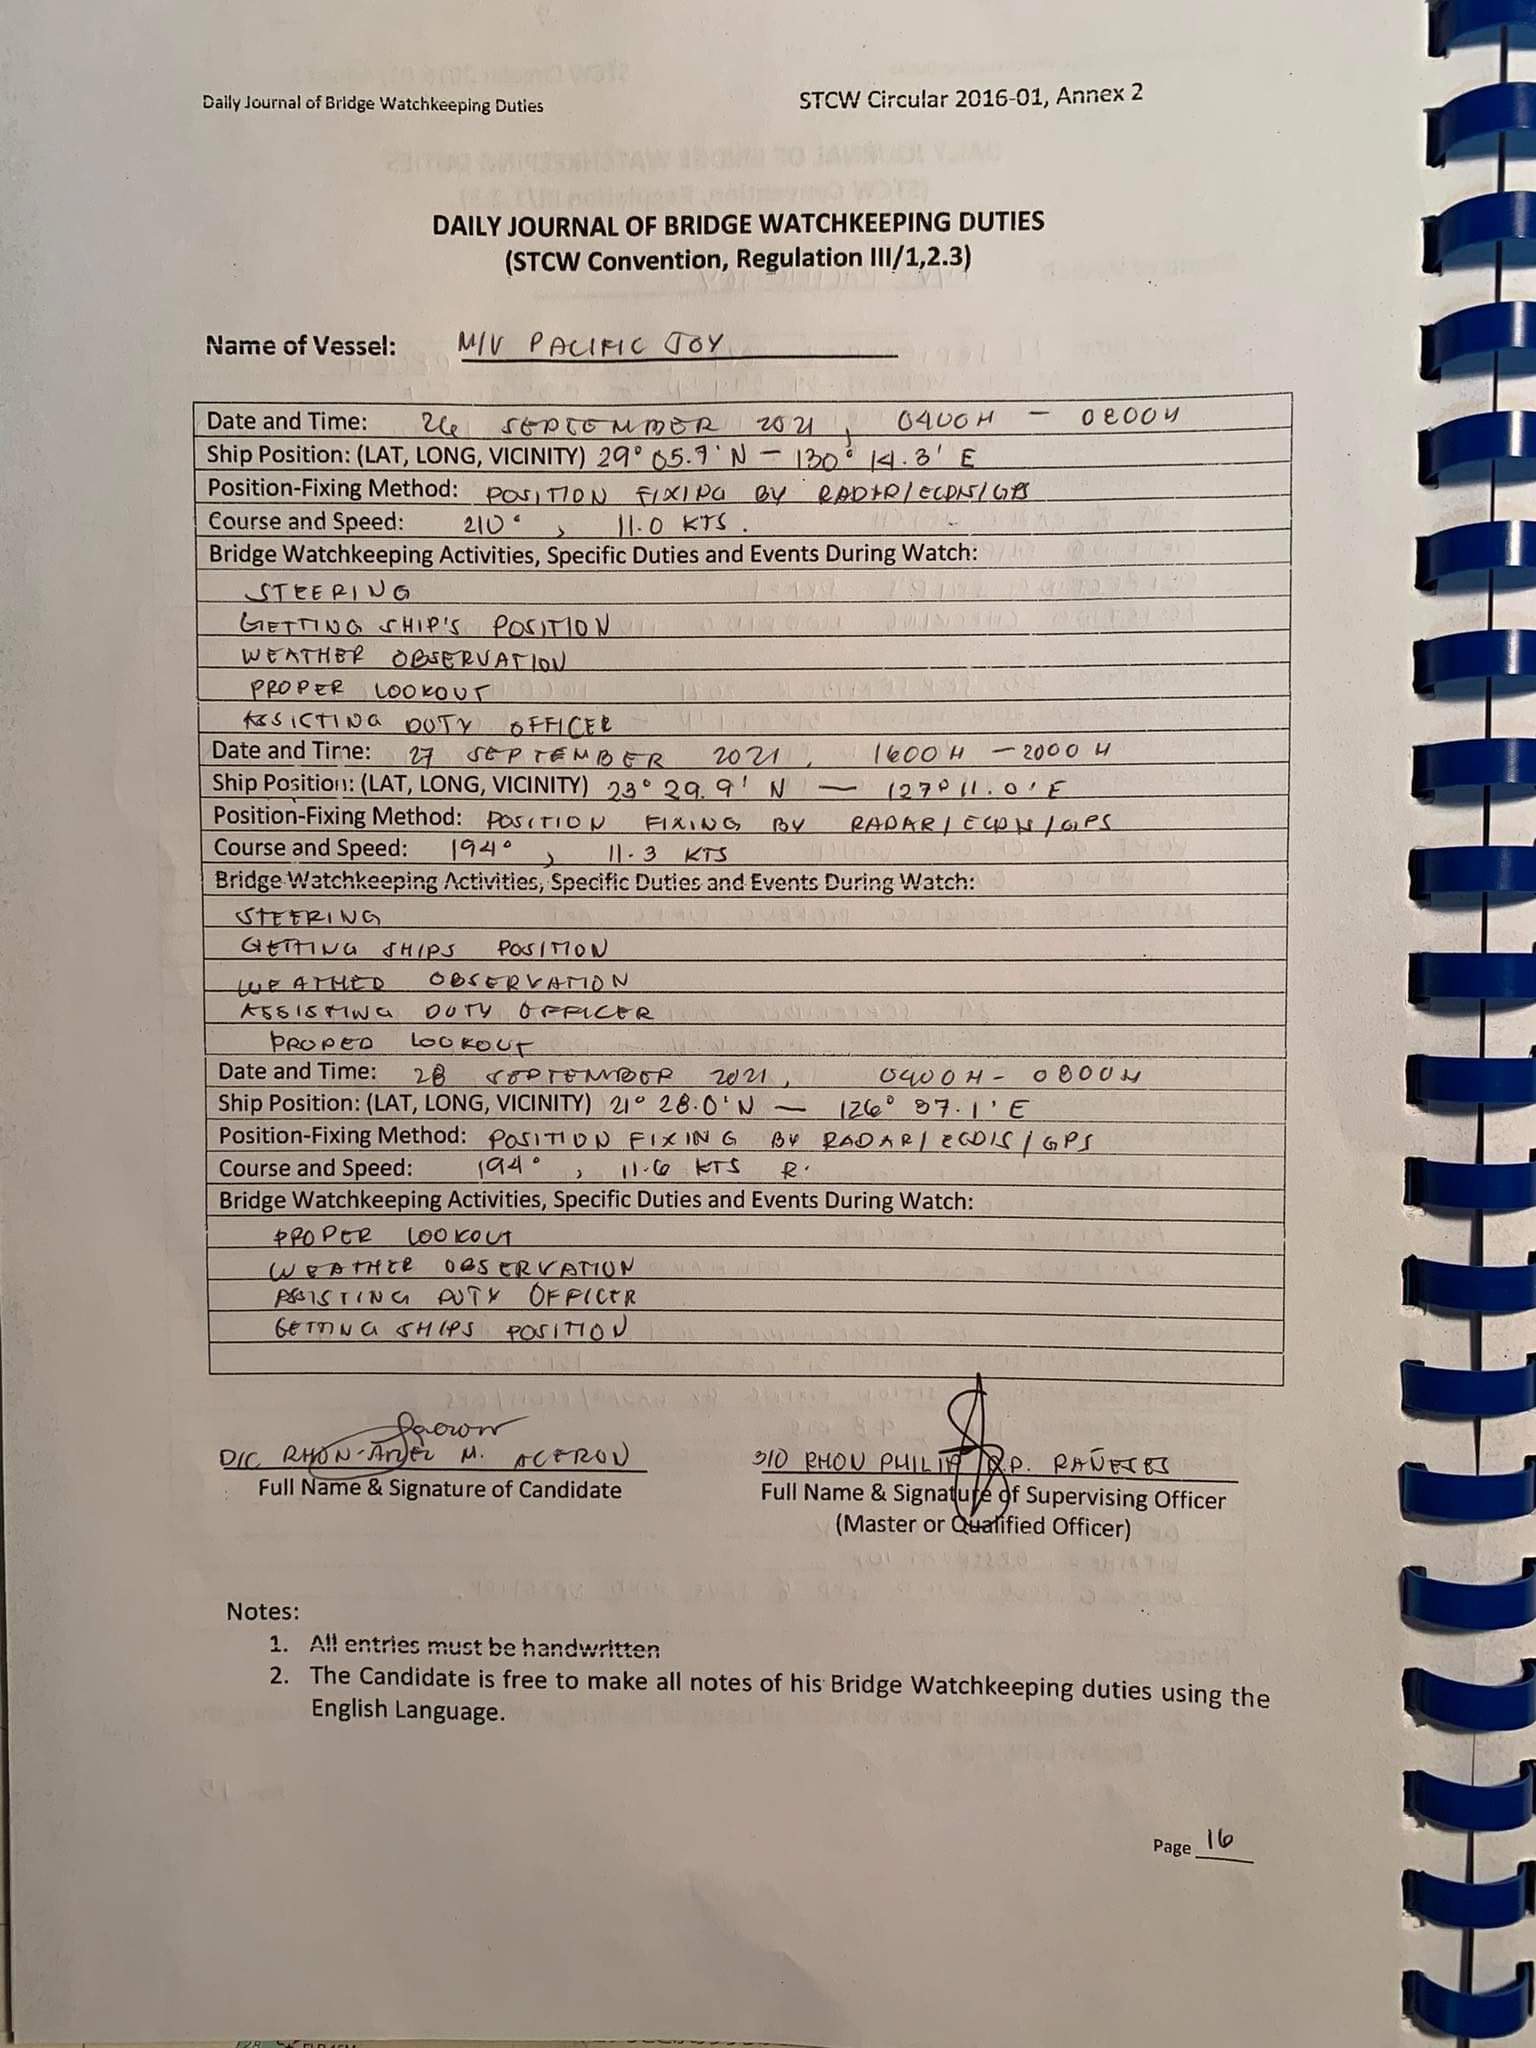 Daily Journal of Bridge Watchkeeping Duties STCW Circular 2016-01, Annex 2
DAILY JOURNAL OF BRIDGE WATCHKEEPING DUTIES
(STCW Convention, Regulation III/1,2.3)
Name of Vessel: M/V PACIFIC JOY
Date and Time: 26 SEPTEMBER 2021, 0400H - 0800H
Ship Position: (LAT, LONG, VICINITY) 29° 05.7' N - 130° 14.3' E
Position-Fixing Method: POSITION FIXING BY RADAR/ECDIS/GPS
Course and Speed: 210°, 11.0 KTS.
Bridge Watchkeeping Activities, Specific Duties and Events During Watch:
STEERING
GETTING SHIP'S POSITION
WEATHER OBSERVATION
PROPER LOOKOUT
ASSICTING DUTY OFFICER
Date and Time: 27 SEPTEMBER 2021, 1600H - 2000H
Ship Position: (LAT, LONG, VICINITY) 23° 29.9' N - 127° 11.0' E
Position-Fixing Method: POSITION FIXING BY RADAR/ECDIS/GPS
Course and Speed: 194°, 11.3 KTS
Bridge Watchkeeping Activities, Specific Duties and Events During Watch:
STEERING
GETTING SHIPS POSITION
WEATHER OBSERVATION
ASSISTING DUTY OFFICER
PROPER LOOKOUT
Date and Time: 28 SEPTEMBER 2021, 0400H - 0800H
Ship Position: (LAT, LONG, VICINITY) 21° 28.0' N - 126° 37.1' E
Position-Fixing Method: POSITION FIXING BY RADAR/ECDIS/GPS
Course and Speed: 194°, 11.6 KTS R.
Bridge Watchkeeping Activities, Specific Duties and Events During Watch:
PROPER LOOKOUT
WEATHER OBSERVATION
ASSISTING DUTY OFFICER
GETTING SHIPS POSITION
D/C RHON-ARJEL M. ACERON 3/O RHON PHILIP P. RAÑESES
Full Name & Signature of Candidate Full Name & Signature of Supervising Officer
(Master or Qualified Officer)
Notes:
1. All entries must be handwritten
2. The Candidate is free to make all notes of his Bridge Watchkeeping duties using the
English Language.
Page 16